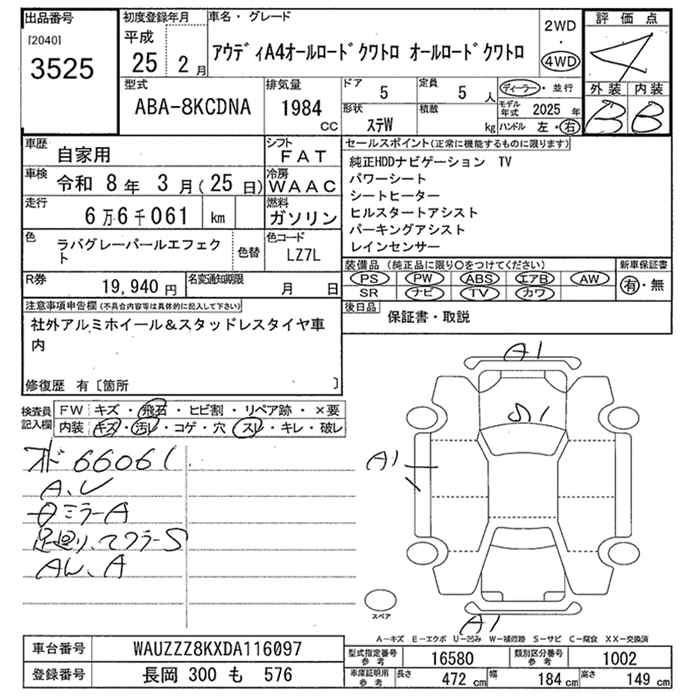 出品番号 初度登録年月 車名・グレード 2WD 評価点
[2040] 平成 ・ 4
3525 25 2月 アウディA4オールロードクワトロ オールロードクワトロ 4WD
型式 排気量 ドア 定員 ディーラー・並行 外装 内装
ABA-8KCDNA 1984 CC 5 5人 モデル年式 2025年 B B
形状 ステW 積数 kg ハンドル 左・右
車歴 自家用 シフト FAT セールスポイント(正常に機能するものに限ります)
車検 令和 8年 3月(25日) 冷房 WAAC 純正HDDナビゲーション TV
パワーシート
走行 6万6千061 km 燃料 ガソリン シートヒーター
ヒルスタートアシスト
色 ラバグレーパールエフェクト 色替 色コード LZ7L パーキングアシスト
レインセンサー
R券 19,940円 名変通知期限 月 日 装備品(純正品に限り○をつけてください) 新車保証書
PS PW ABS エアB AW 有・無
SR ナビ TV カワ
注意事項申告欄(不具合内容等は具体的に記入して下さい) 後日品 保証書・取説
社外アルミホイール&スタッドレスタイヤ車
内
修復歴 有〔箇所 〕
検査員記入欄 FW キズ・飛石・ヒビ割・リペア跡・×要
内装 キズ・汚レ・コゲ・穴・スレ・キレ・破レ
A1
S1
A1
66061
A.U
ミラーA
足廻り、マフラーS
AW.A
スペア
A1
A-キズ E-エクボ U-凹み W-補修跡 S-サビ C-腐食 XX-交換済
車台番号 WAUZZZ8KXDA116097 型式指定番号 参考 16580 類別区分番号 参考 1002
登録番号 長岡 300 も 576 車庫証明用 参考 長さ 472cm 幅 184cm 高さ 149cm